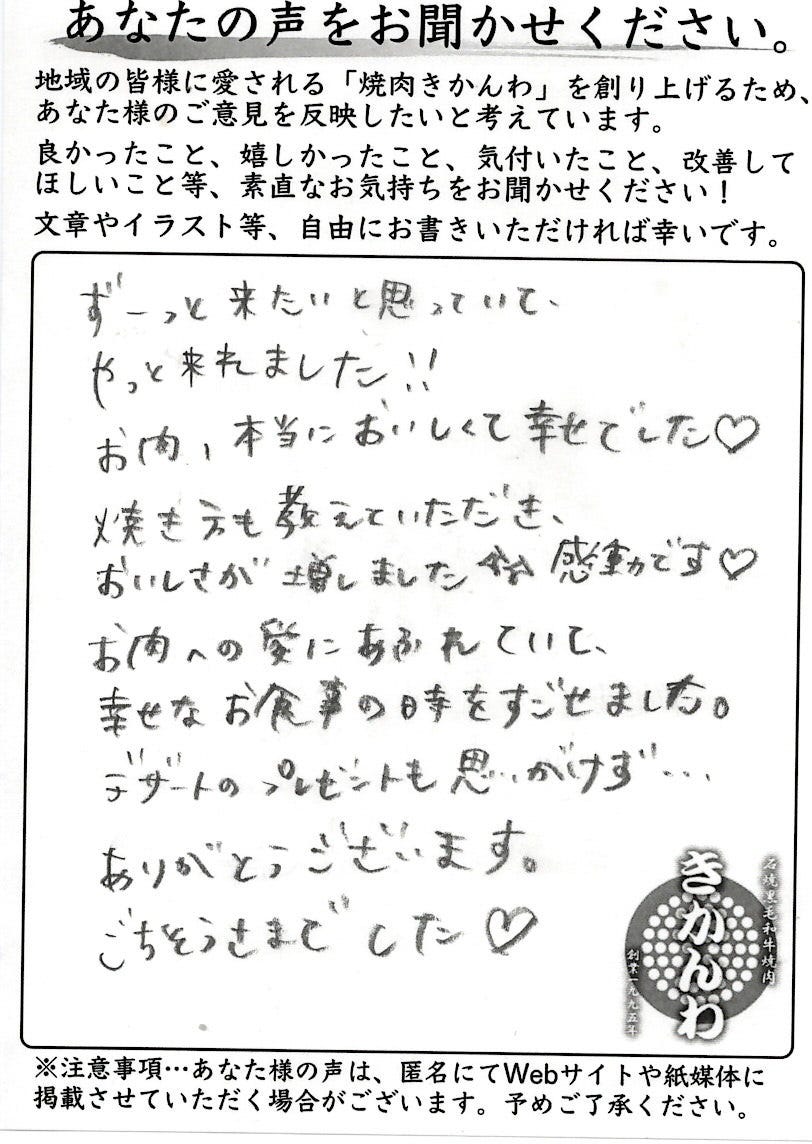 あなたの声をお聞かせください。
地域の皆様に愛される「焼肉きかんわ」を創り上げるため、
あなた様のご意見を反映したいと考えています。
良かったこと、嬉しかったこと、気付いたこと、改善して
ほしいこと等、素直なお気持ちをお聞かせください！
文章やイラスト等、自由にお書きいただければ幸いです。
ずーっと来たいと思っていて、
やっと来れました!!
お肉、本当においしくて幸せでした♡
焼き方も教えていただき、
おいしさが増しました 感動です♡
お肉への愛にあふれていて、
幸せなお食事の時をすごせました。
デザートのプレゼントも思いがけず…
ありがとうございます。
ごちそうさまでした♡
石焼黒毛和牛焼肉
きかんわ
創業一九九五年
※注意事項…あなた様の声は、匿名にてWebサイトや紙媒体に
掲載させていただく場合がございます。予めご了承ください。